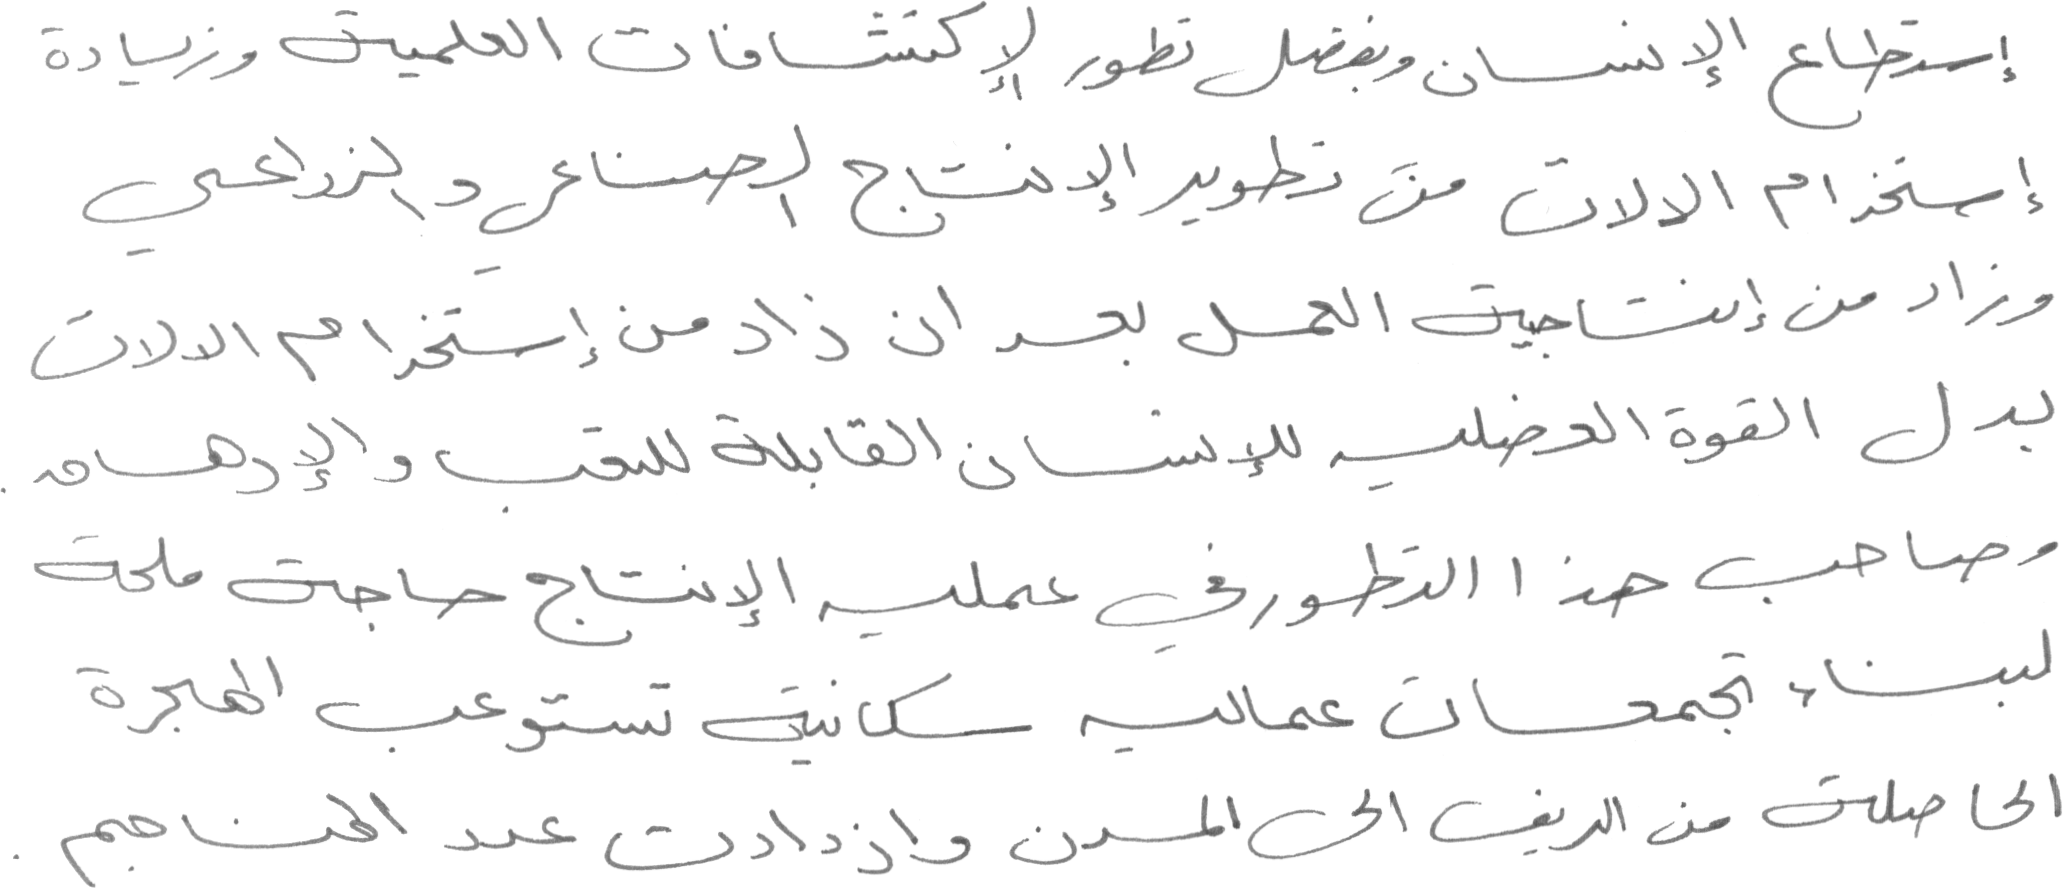 إستطاع الإنسان وبفضل تطور الإكتشافات العلمية وزيادة
إستخدام الالات من تطوير الإنتاج الصناعي والزراعي
وزاد من إنتاجية العمل بعد ان زاد من إستخدام الالات
بدل القوة العضلية للإنسان القابلة للتعب والإرهاق.
وصاحب هذا التطور في عملية الإنتاج حاجة ملحة
لبناء تجمعات عمالية سكانية تستوعب الهجرة
الحاصلة من الريف الى المدن وازدادت عدد المناجم.